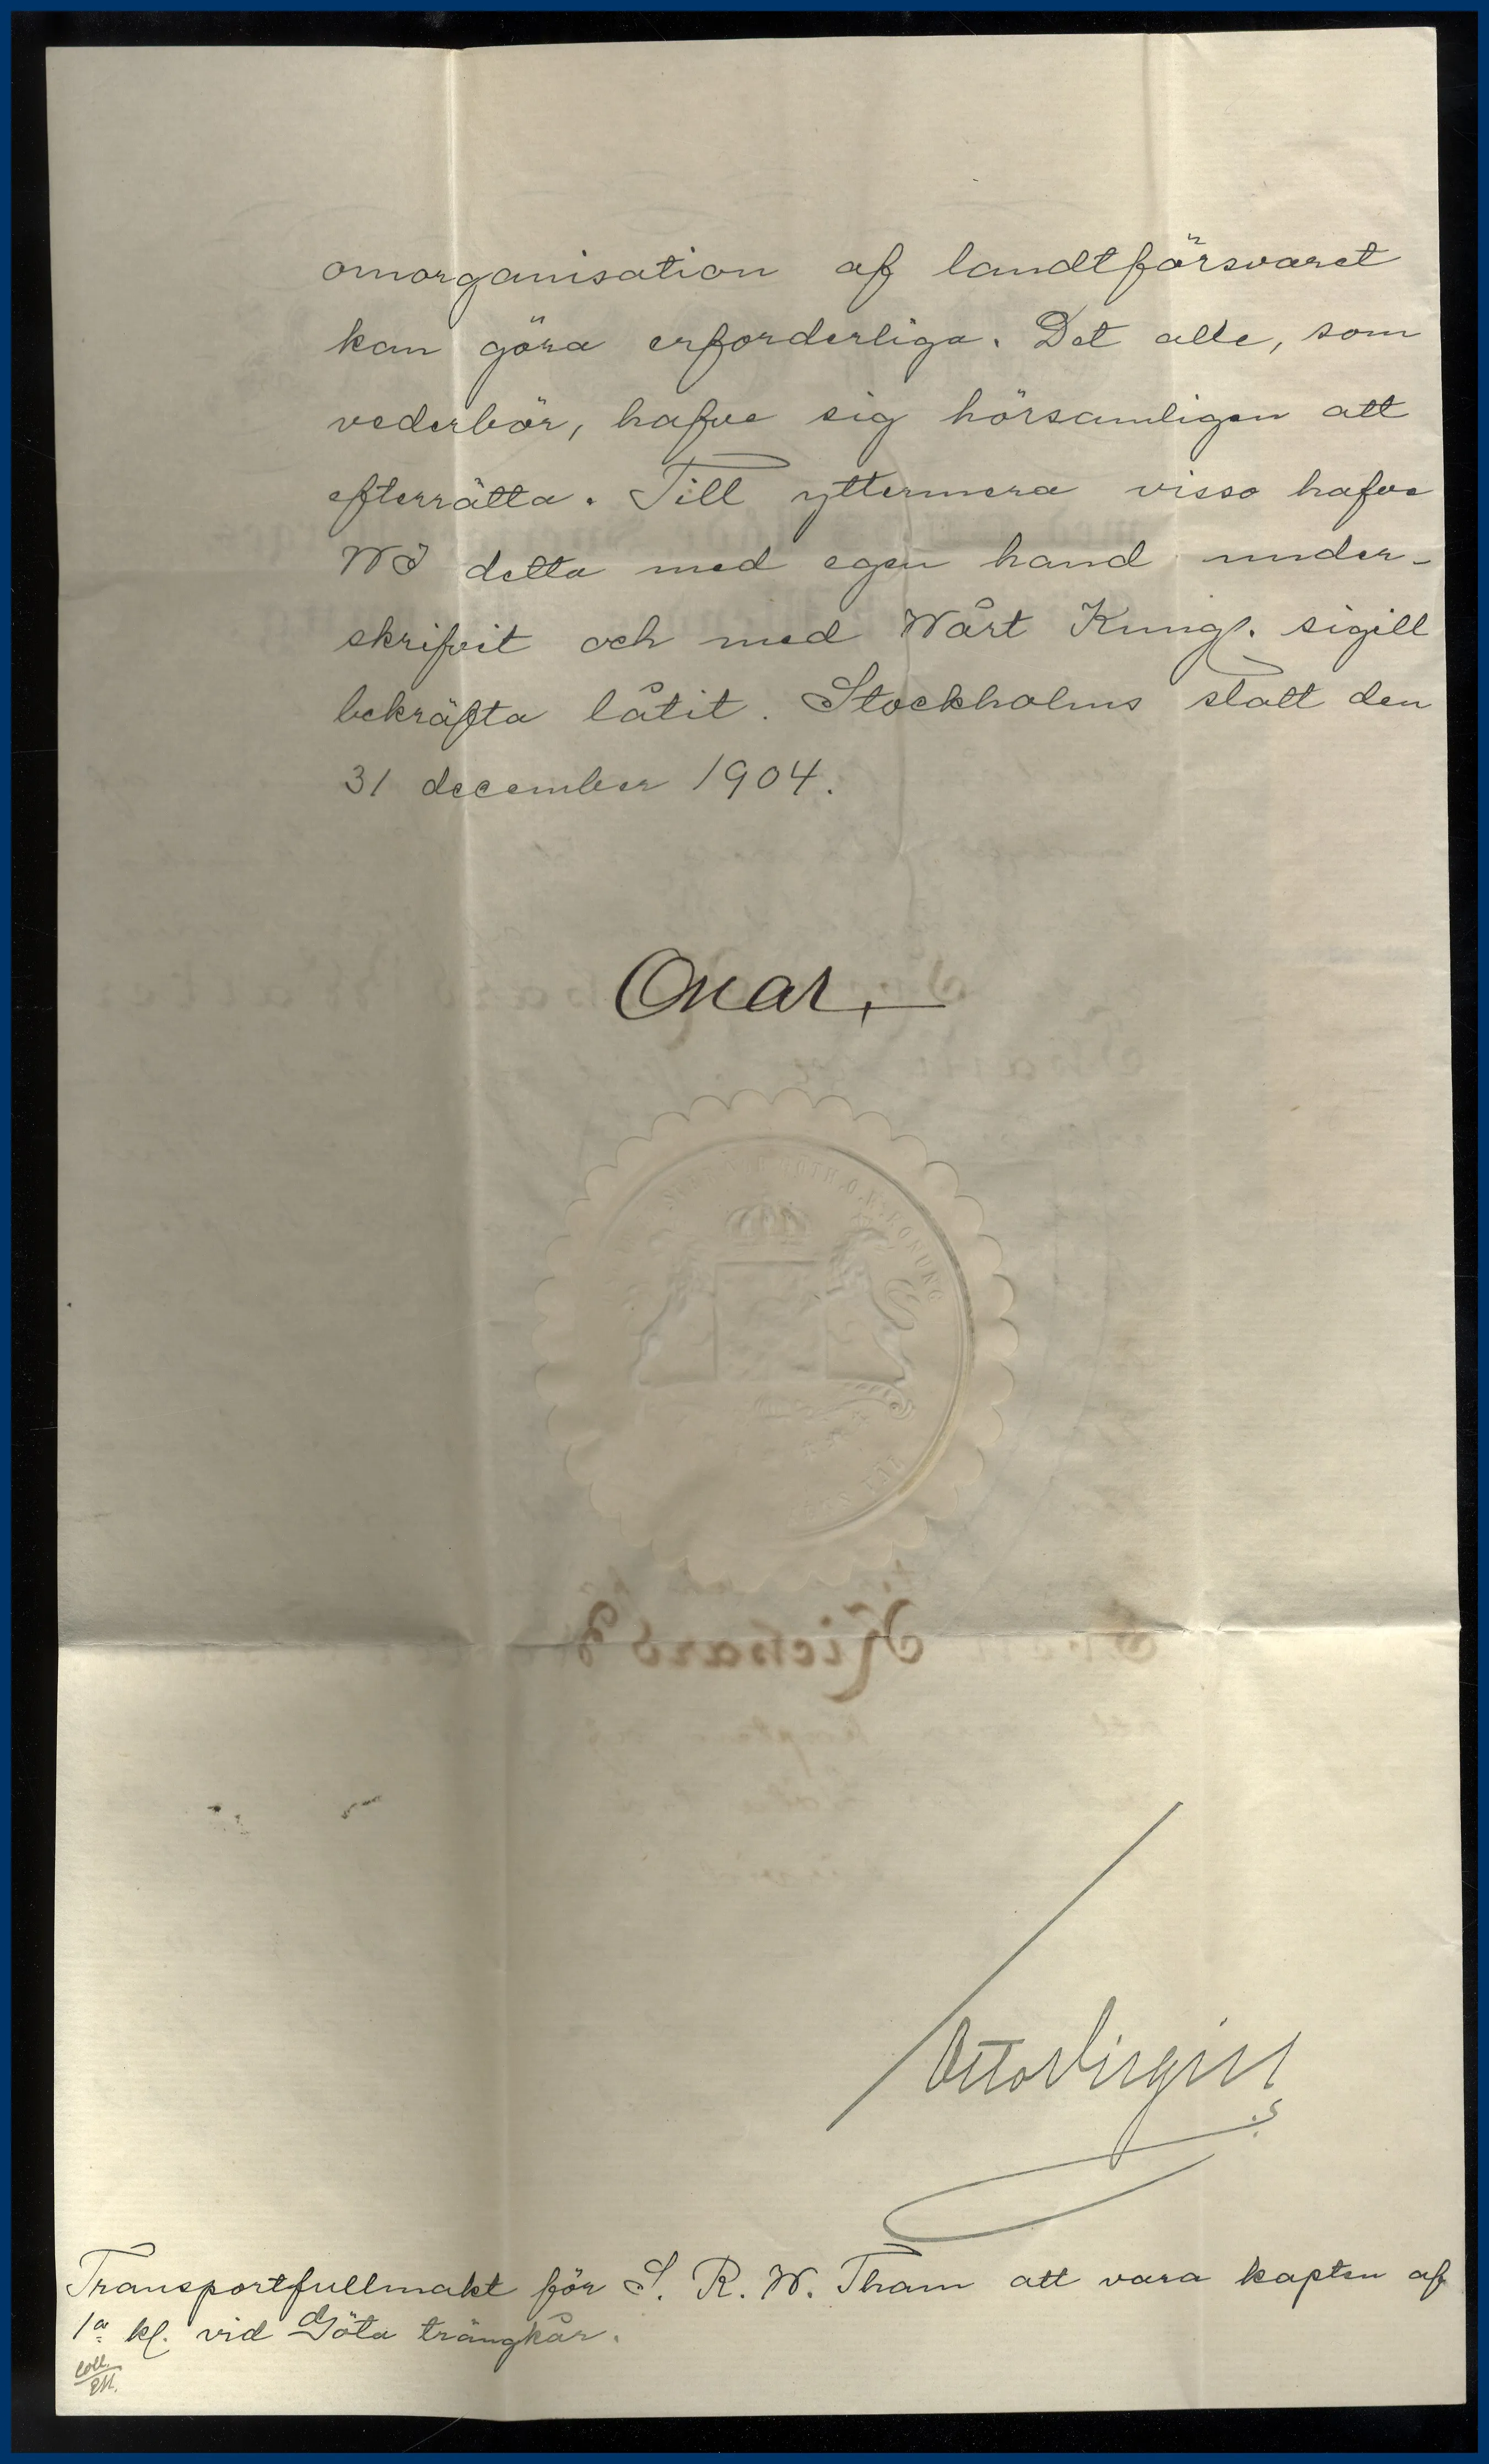 omorganisation af landtförsvaret
kan göra erforderliga. Det alle, som
vederbör, hafve sig hörsamligen att
efterrätta. Till yttermera visso hafve
WI detta med egen hand under-
skrifvit och med Wårt Kungl. sigill
bekräfta låtit. Stockholms slott den
31 december 1904.
Oscar.
KONUNG
Richard
Otto Virgin
Transportfullmakt för S. R. W. Tham att vara kapten af
1a kl. vid Göta trängkår.
Coll.